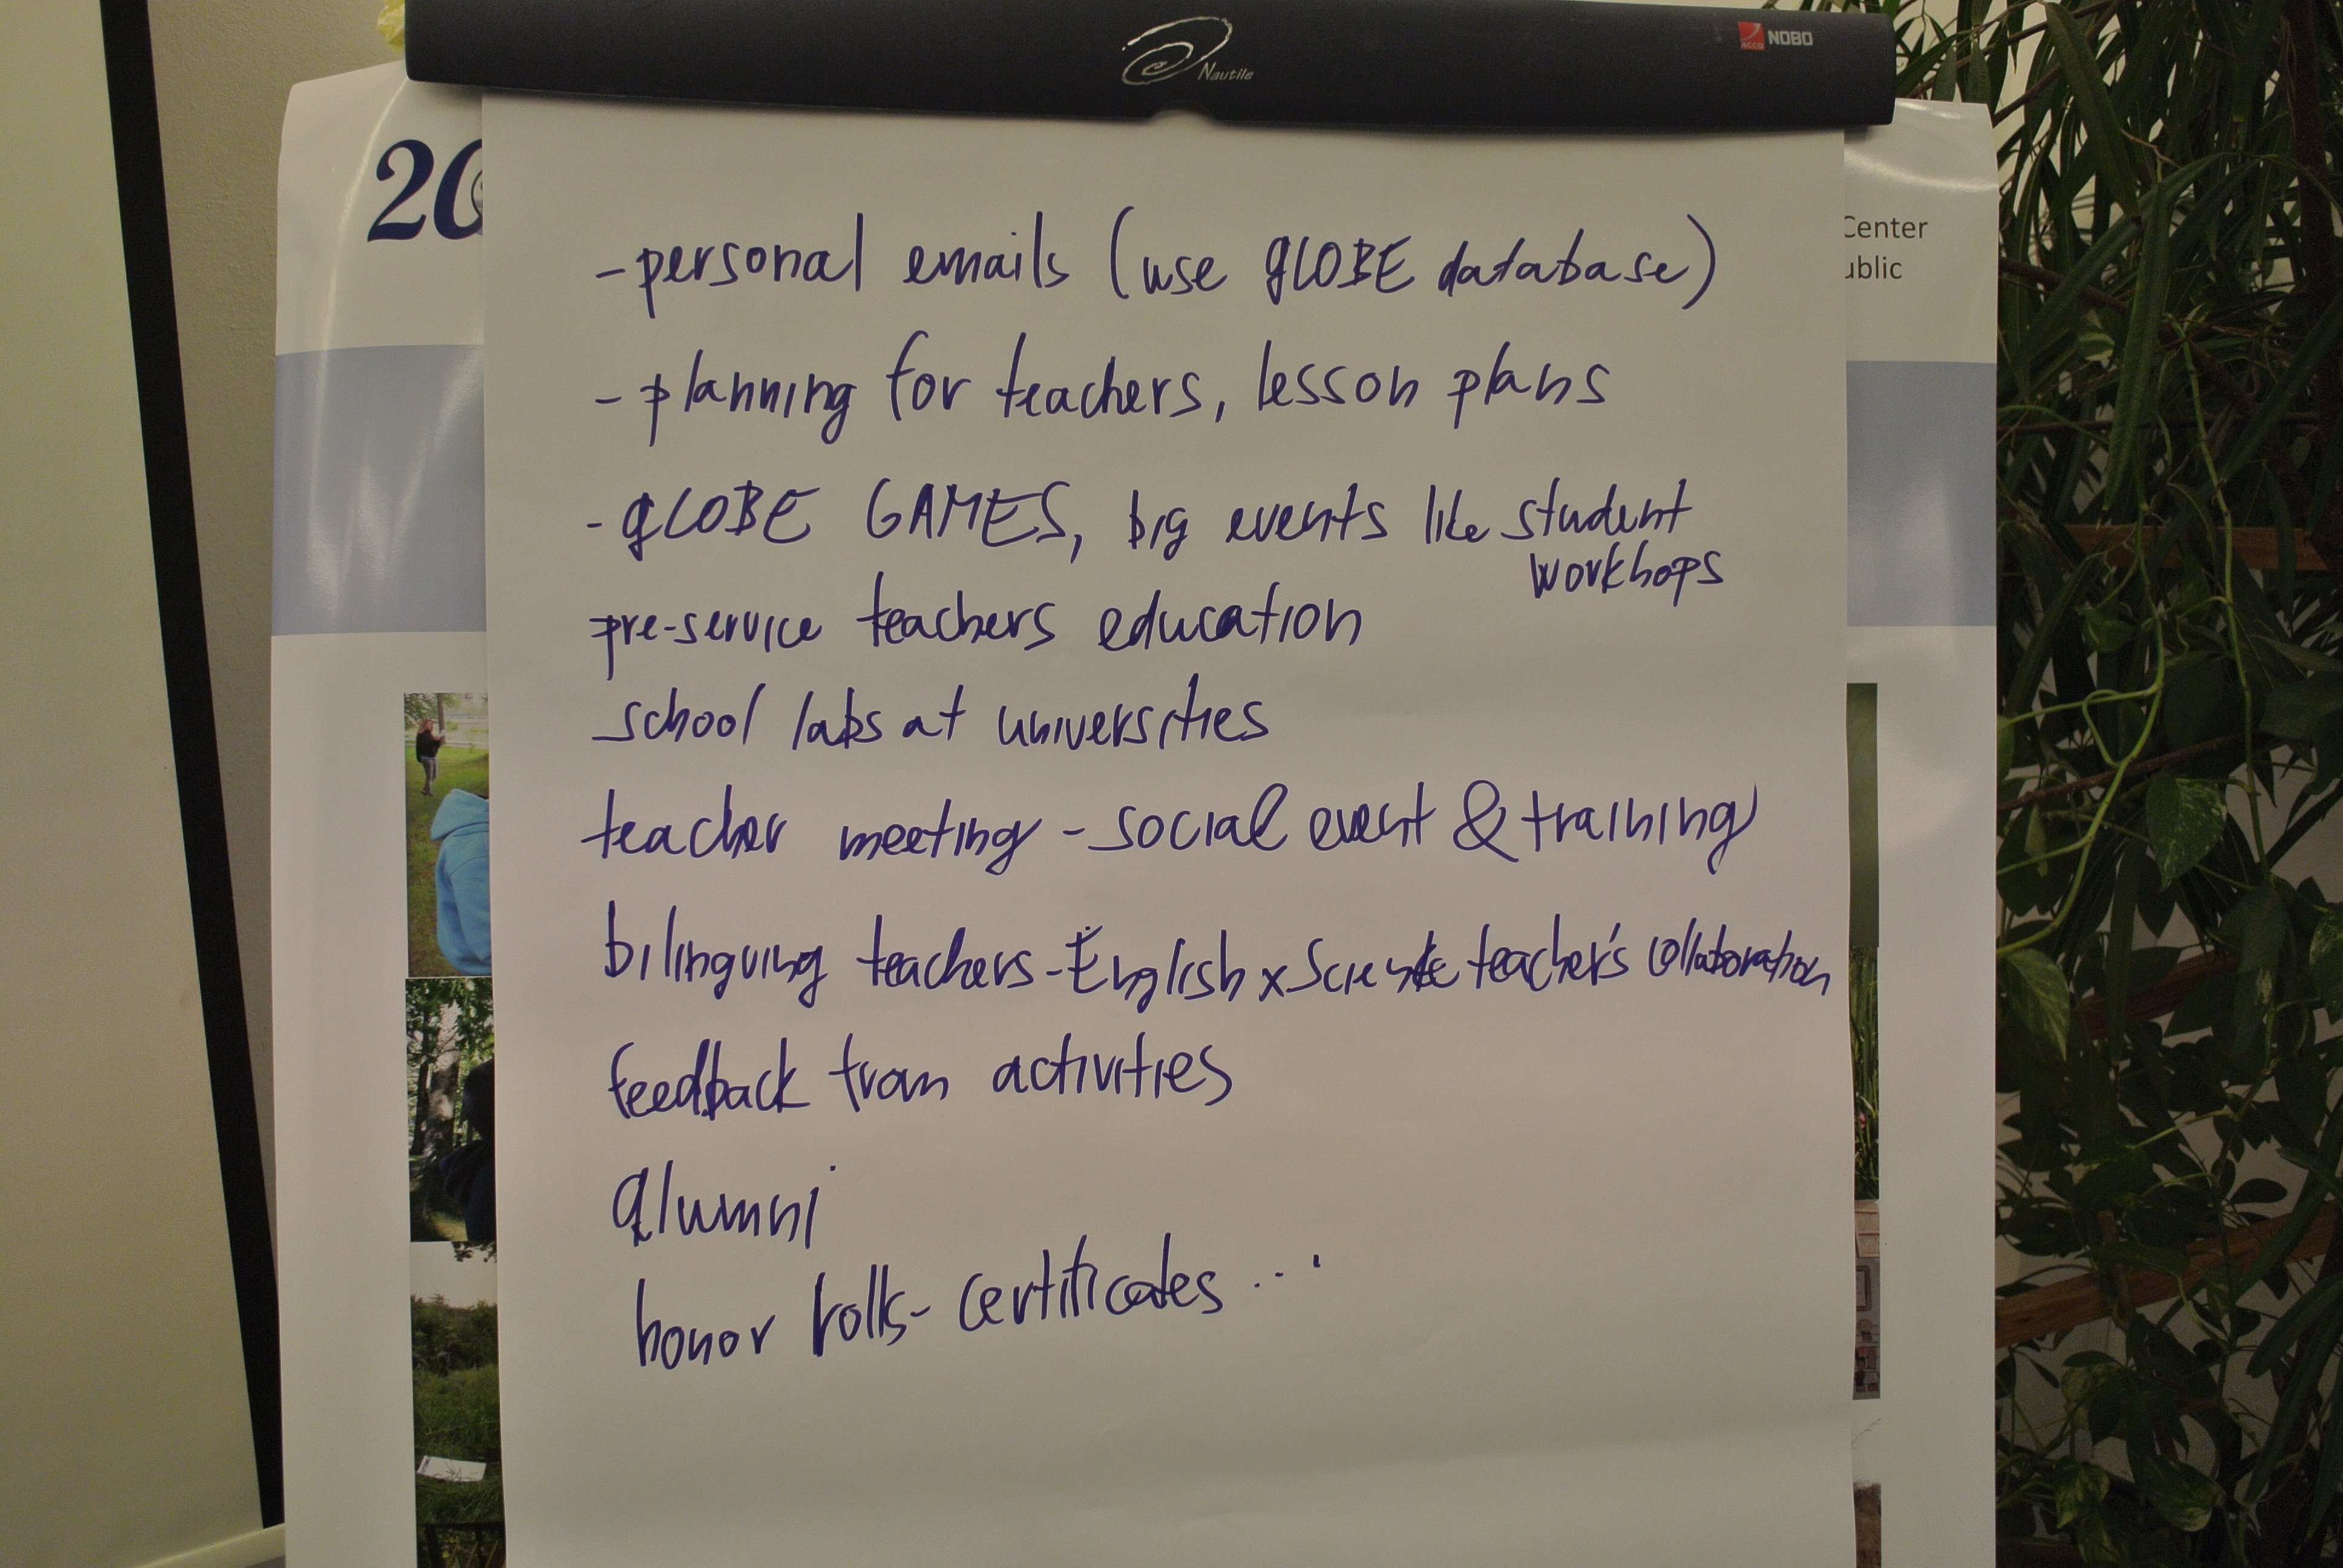 Nautile
ACCO NOBO
20
Center
ublic
- personal emails (use gLOBE database)
- planning for teachers, lesson plans
- gLOBE GAMES, big events like student
workhops
pre-service teachers education
school labs at universities
teacher meeting - social event & training
bilinguing teachers - English x Science teacher's collaboration
feedback from activities
alumni
honor rolls - certificates ...